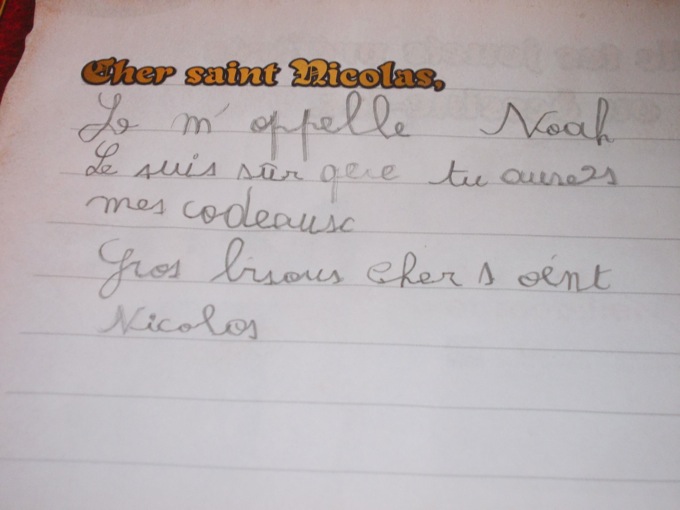 Cher saint Nicolas,
Je m'appelle Noah
Je suis sûr que tu auras
mes cadeaux
Gros bisous cher saint
Nicolas